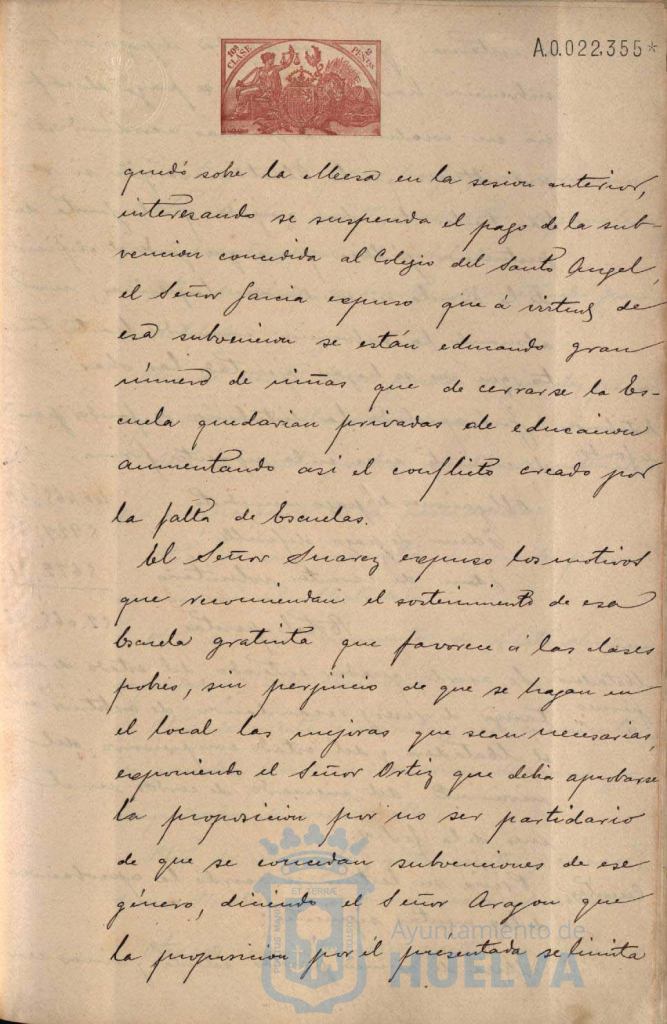 10ª CLASE 2 PESETAS
A.0.022,355*
quedó sobre la Mesa en la sesion anterior,
interesando se suspenda el pago de la sub-
vencion concedida al Colegio del Santo Angel,
el Señor Garcia expuso que á virtud de
esa subvencion se están educando gran
número de niñas que de cerrarse la Es-
cuela quedarian privadas de educacion
aumentando asi el conflicto creado por
la falta de Escuelas.
El Señor Suarez expuso los motivos
que recomiendan el sostenimiento de esa
Escuela gratuita que favorece á las clases
pobres, sin perjuicio de que se hagan en
el local las mejoras que sean necesarias,
exponiendo el Señor Ortiz que debia aprobarse
la proposicion por no ser partidario
de que se concedan subvenciones de ese
género, diciendo el Señor Aragon que
la proposicion por él presentada se limita
Ayuntamiento de
HUELVA